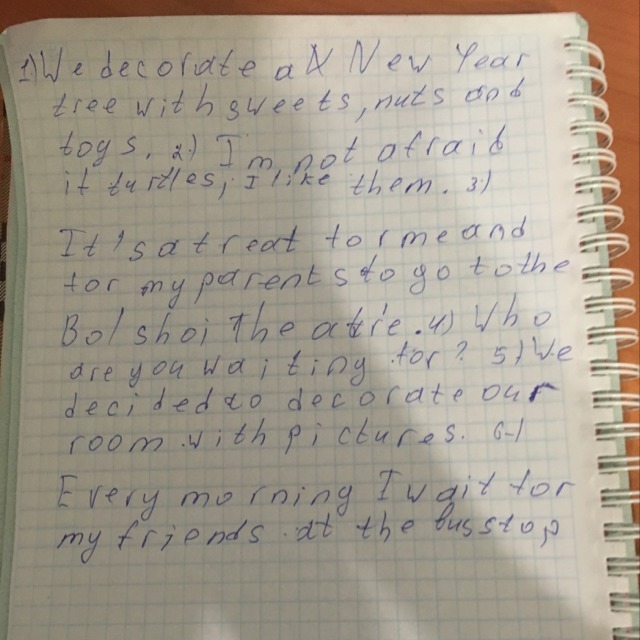 1) We decorate a N New Year
tree with sweets, nuts and
toys. 2) I'm not afraid
it turtles, I like them. 3)
It's a treat for me and
for my parents to go to the
Bolshoi Theatre. 4) Who
are you waiting for? 5) We
decided to decorate our
room with pictures. 6)
Every morning I wait for
my friends at the bus stop